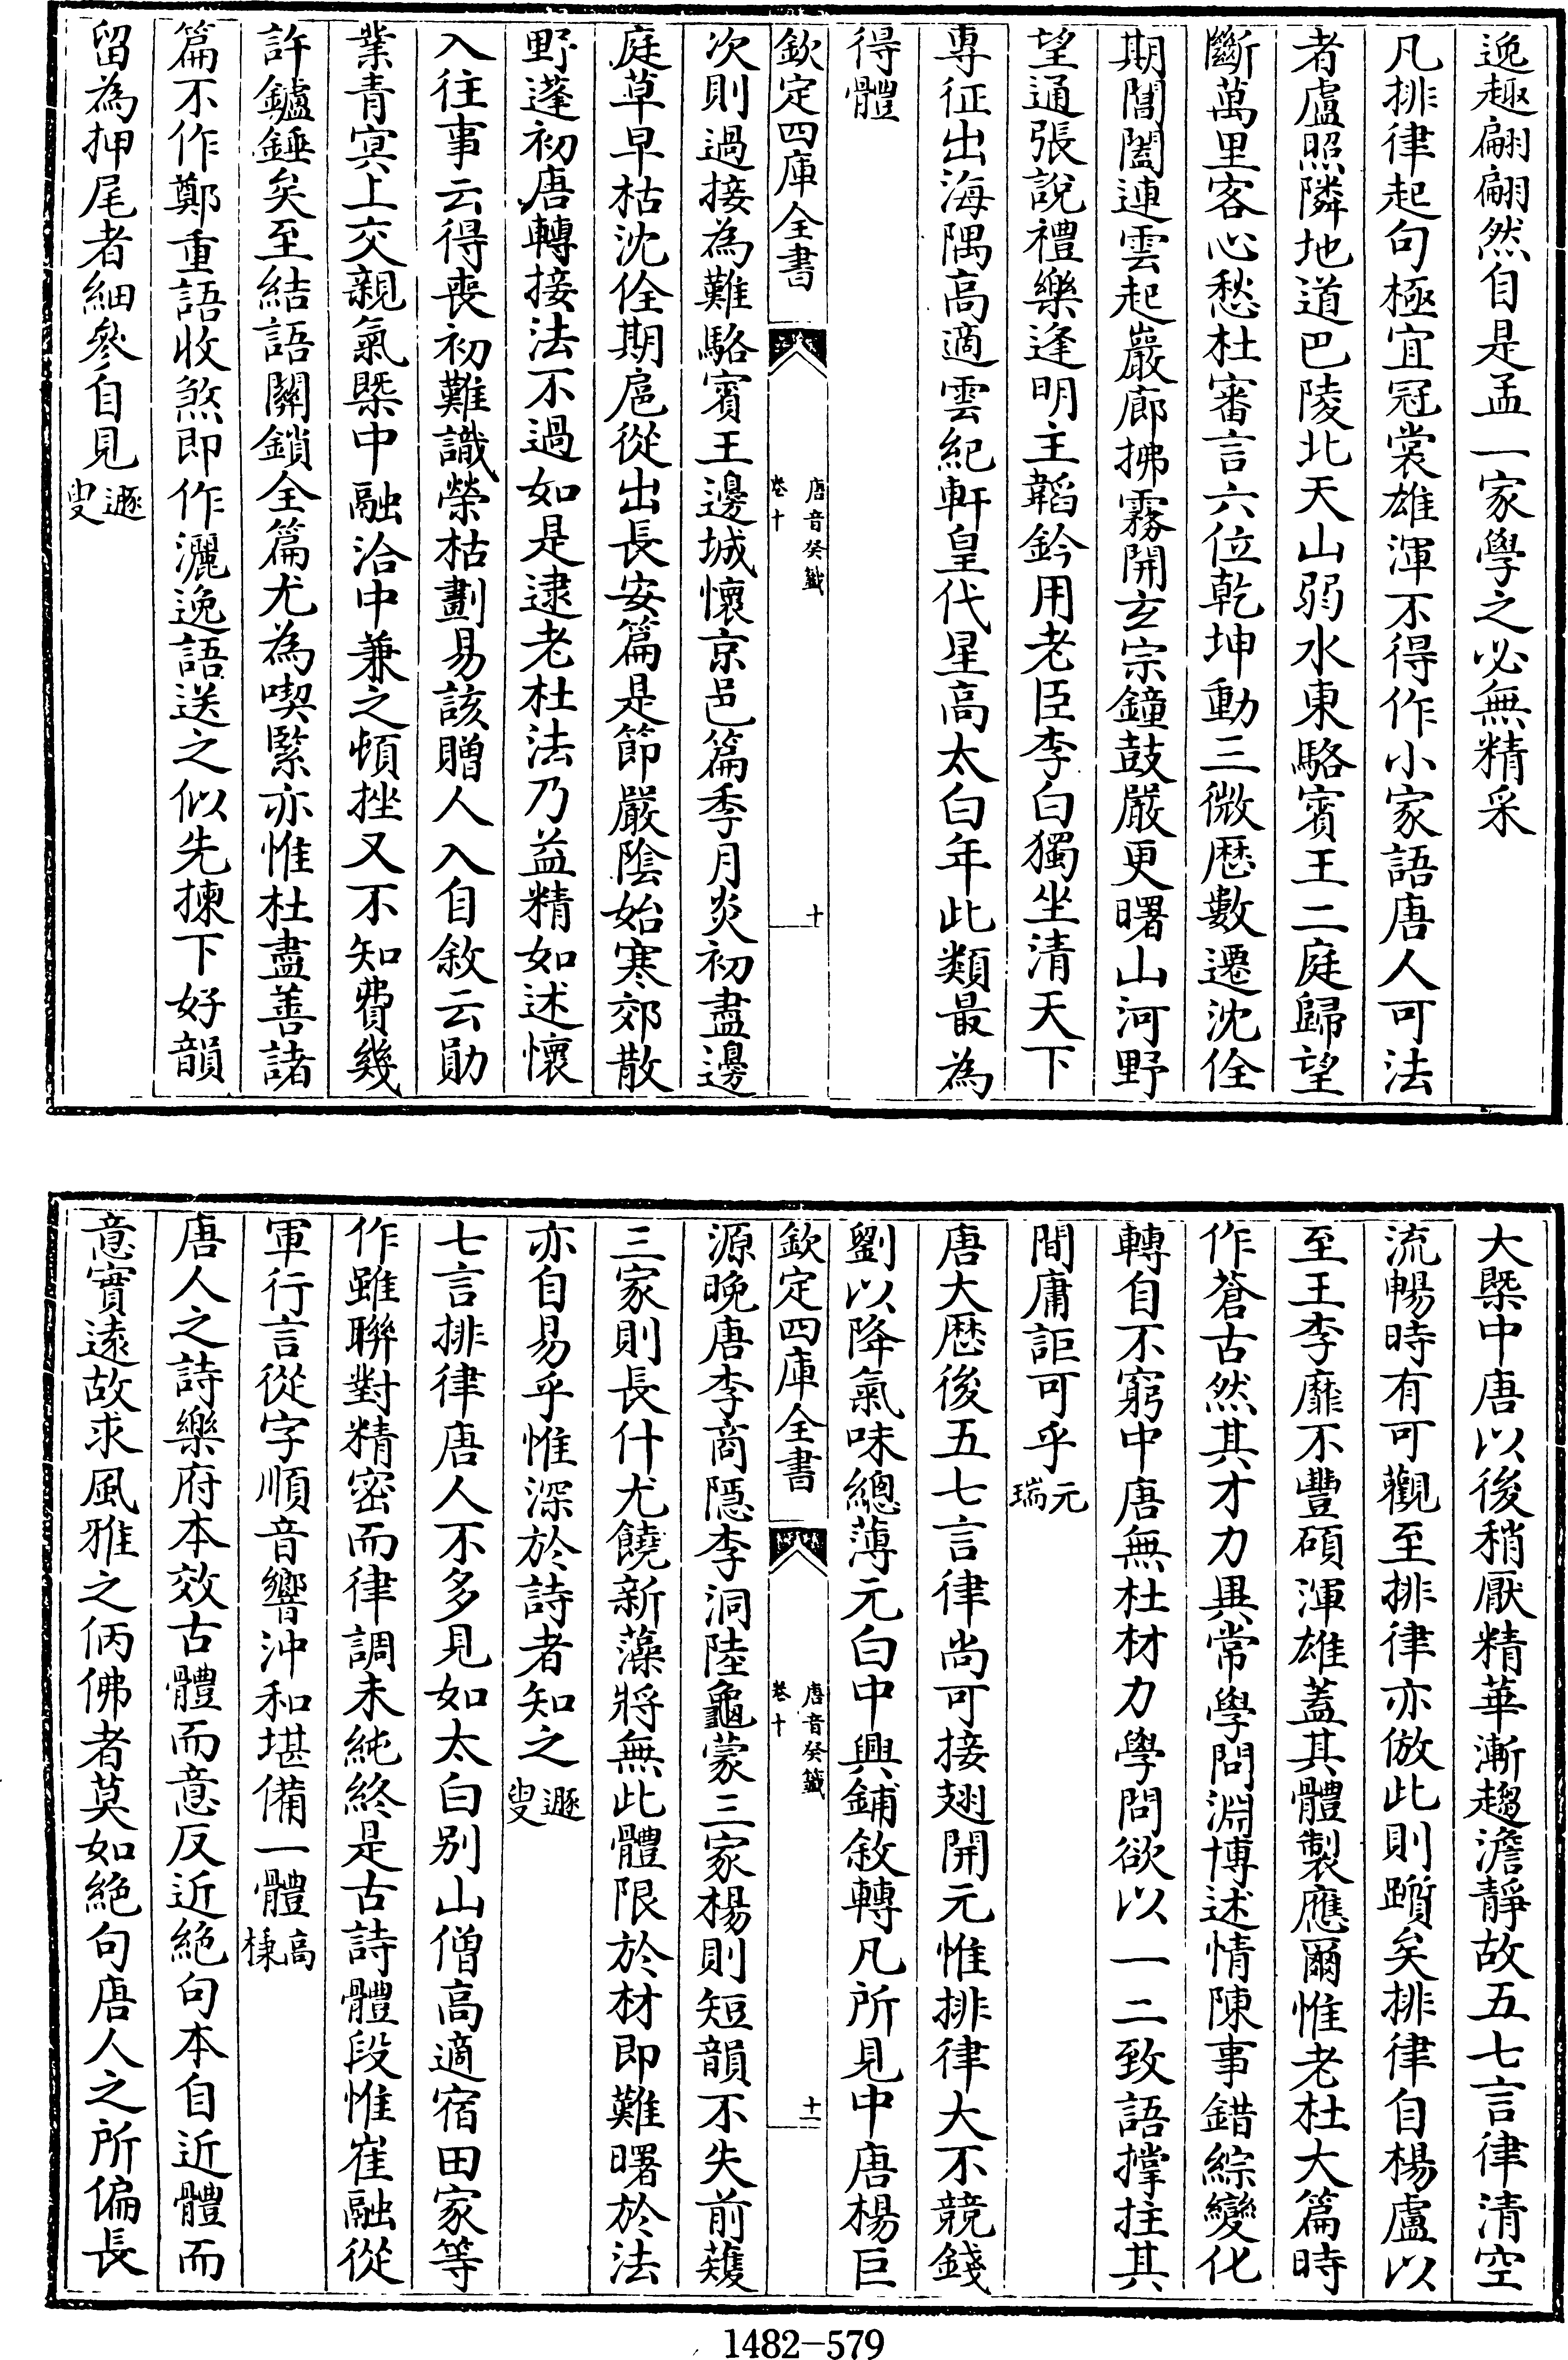 逸趣翩翩然自是孟一家學之必無精采
凡排律起句極宜冠裳雄渾不得作小家語唐人可法
者盧照隣地道巴陵北天山弱水東駱賓王二庭歸望
斷萬里客心愁杜審言六位乾坤動三微歴數遷沈佺
期閶闔連雲起巖廊拂霧開玄宗鐘鼓嚴更曙山河野
望通張說禮樂逢明主韜鈐用老臣李白獨坐清天下
專征出海隅高適雲紀軒皇代星高太白年此類最為
得體
欽定四庫全書
唐音癸籖
卷十
十
次則過接為難駱賓王邊城懷京邑篇季月炎初盡邊
庭草早枯沈佺期扈從出長安篇是節嚴陰始寒郊散
野蓬初唐轉接法不過如是逮老杜法乃益精如述懷
入往事云得喪初難識榮枯劃易該贈人入自敘云勛
業青冥上交親氣槩中融洽中兼之頓挫又不知費幾
許鑪錘矣至結語關鎖全篇尤為喫緊亦惟杜盡善諸
篇不作鄭重語收煞即作灑逸語送之似先揀下好韻
留為押尾者細參自見遯叟
大槩中唐以後稍厭精華漸趨澹靜故五七言律清空
流暢時有可觀至排律亦倣此則躓矣排律自楊盧以
至王李靡不豐碩渾雄蓋其體製應爾惟老杜大篇時
作蒼古然其才力異常學問淵博述情陳事錯綜變化
轉自不窮中唐無杜材力學問欲以一二致語撑拄其
間庸詎可乎元瑞
唐大歴後五七言律尚可接翅開元惟排律大不競錢
劉以降氣味總薄元白中興鋪敘轉凡所見中唐楊巨
欽定四庫全書
唐音癸籖
卷十
十一
源晚唐李商隱李洞陸龜蒙三家楊則短韻不失前蘐
三家則長什尤饒新藻將無此體限於材即難曙於法
亦自易乎惟深於詩者知之遯叟
七言排律唐人不多見如太白别山僧高適宿田家等
作雖聯對精密而律調未純終是古詩體段惟崔融從
軍行言從字順音響沖和堪備一體高棅
唐人之詩樂府本效古體而意反近絶句本自近體而
意實遠故求風雅之仿佛者莫如絶句唐人之所偏長
1482-579